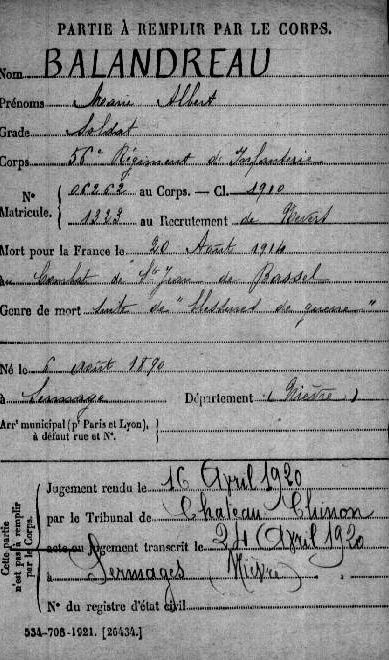 PARTIE À REMPLIR PAR LE CORPS.
Nom BALANDREAU
Prénoms Marie Albert
Grade Soldat
Corps 56e Régiment d'Infanterie
N° Matricule. { 06262 au Corps. — Cl. 1910
1223 au Recrutement de Nevers
Mort pour la France le 20 Août 1914
au Combat de "St Jean de Bassel
Genre de mort suite de "blessures de guerre"
Né le 6 août 1890
à Sermage Département (Nièvre)
Arrt municipal (pr Paris et Lyon),
à défaut rue et N°.
Cette partie n'est pas à remplir par le Corps.
Jugement rendu le 16 Avril 1920
par le Tribunal de Chateau Chinon
acte ou jugement transcrit le 24 Avril 1920
à Sermages (Nièvre)
N° du registre d'état civil
534-708-1921. [26434.]